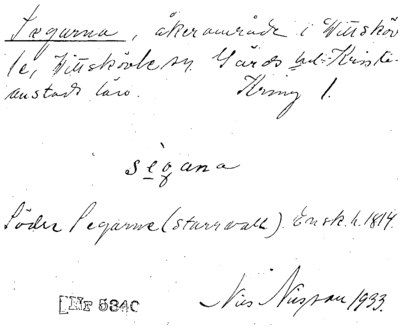 Segarna, åkerområde i Vittsköv
le, Vittskövle sn. Gärds hd. Kristi-
anstads län. Kring 1.
sègana
Söder Segarne (starrvall). Ensk. h. 1814.
[Nr 534C
Nils Nilsson 1933.